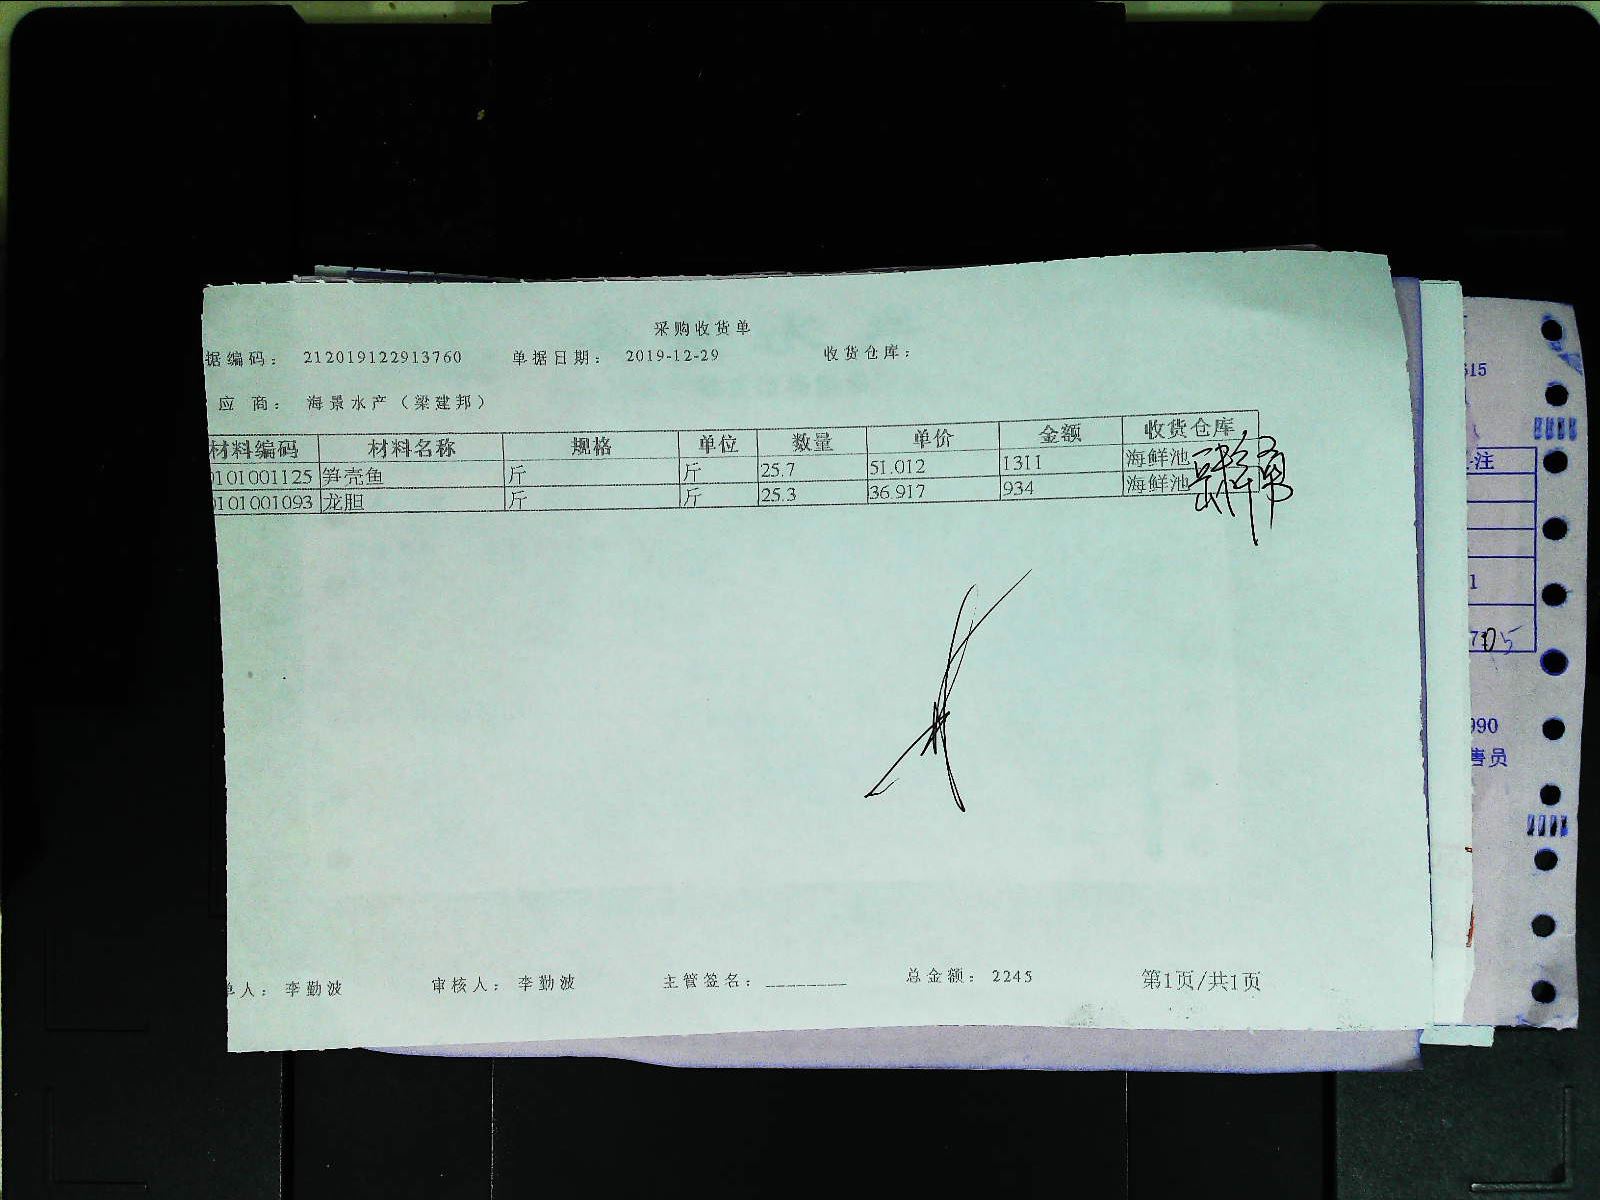 采购收货单
据编码： 212019122913760 单据日期： 2019-12-29 收货仓库：
应 商： 海景水产（梁建邦）
材料编码 材料名称 规格 单位 数量 单价 金额 收货仓库
0101001125 笋壳鱼 斤 斤 25.7 51.012 1311 海鲜池
0101001093 龙胆 斤 斤 25.3 36.917 934 海鲜池
单人： 李勤波 审核人： 李勤波 主管签名： ________ 总金额： 2245 第1页/共1页
615
注
1
705
990
售员